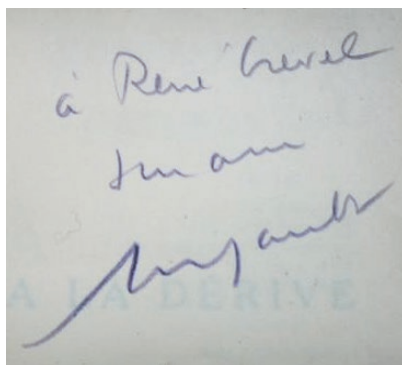 à René Crevel
son ami
Soupault
A LA DÉRIVE